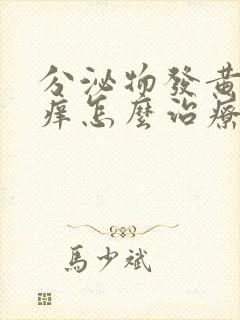 分泌物發黃
痒怎麼治療
馬少斌